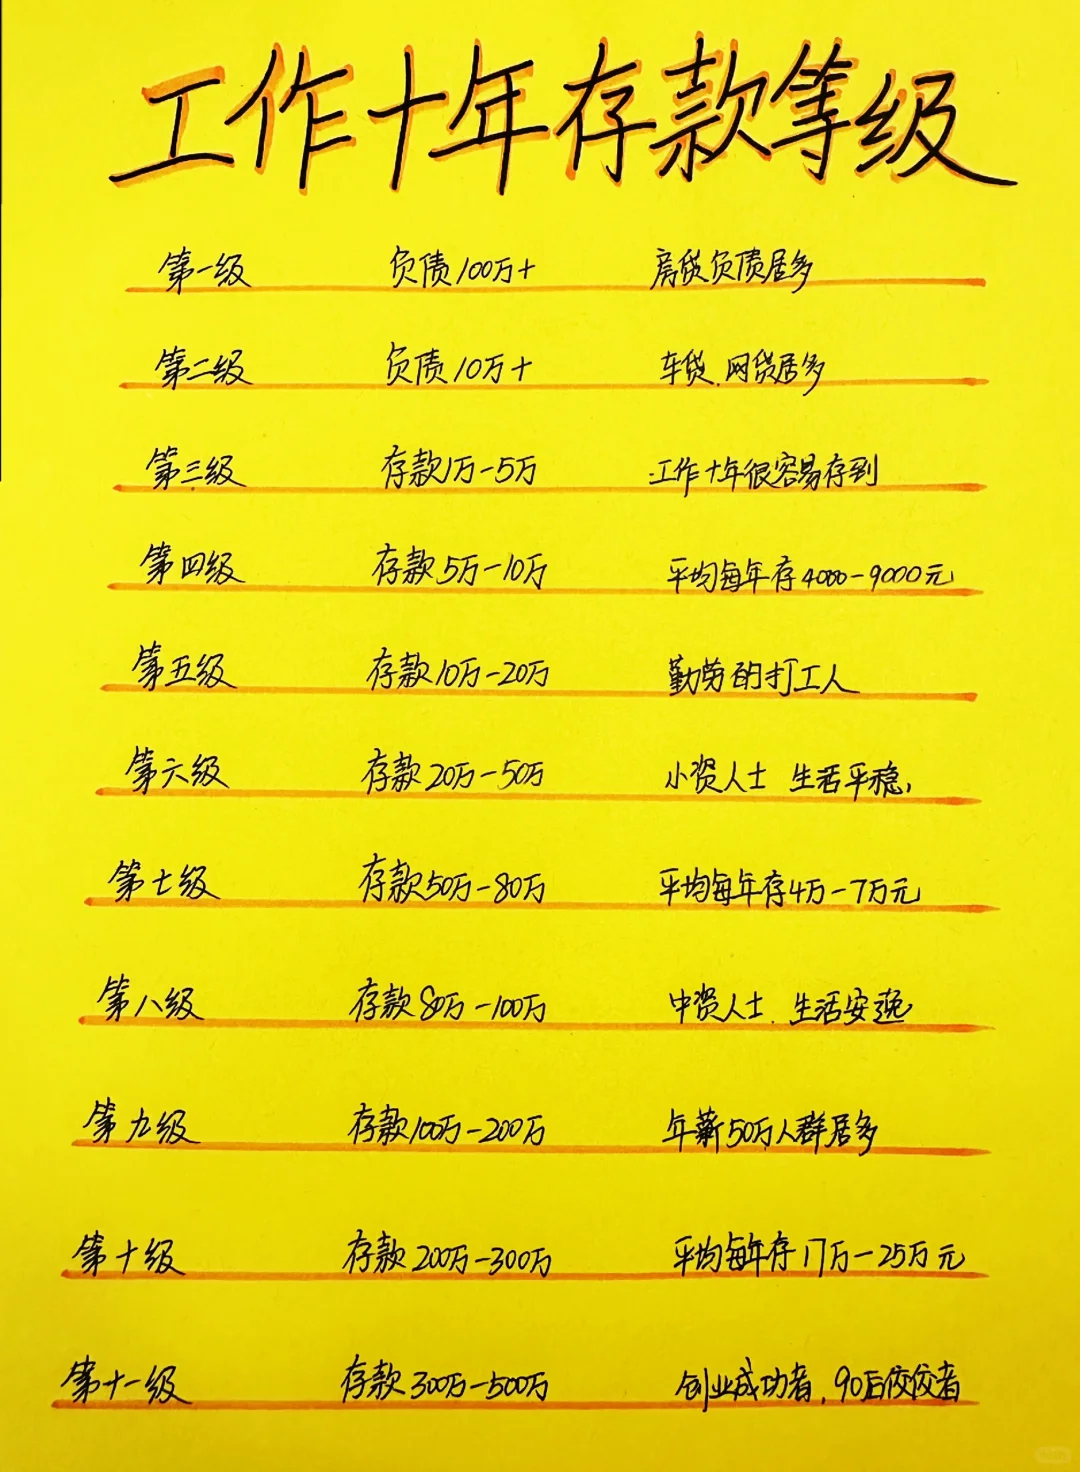 工作十年存款等级
第一级 负债100万+ 房贷负债居多
第二级 负债10万+ 车贷、网贷居多
第三级 存款1万-5万 工作十年很容易存到
第四级 存款5万-10万 平均每年存4000-9000元
第五级 存款10万-20万 勤劳的打工人
第六级 存款20万-50万 小资人士 生活平稳,
第七级 存款50万-80万 平均每年存4万-7万元
第八级 存款80万-100万 中资人士、生活安逸
第九级 存款100万-200万 年薪50万人群居多
第十级 存款200万-300万 平均每年存17万-25万元
第十一级 存款300万-500万 创业成功者,90后佼佼者